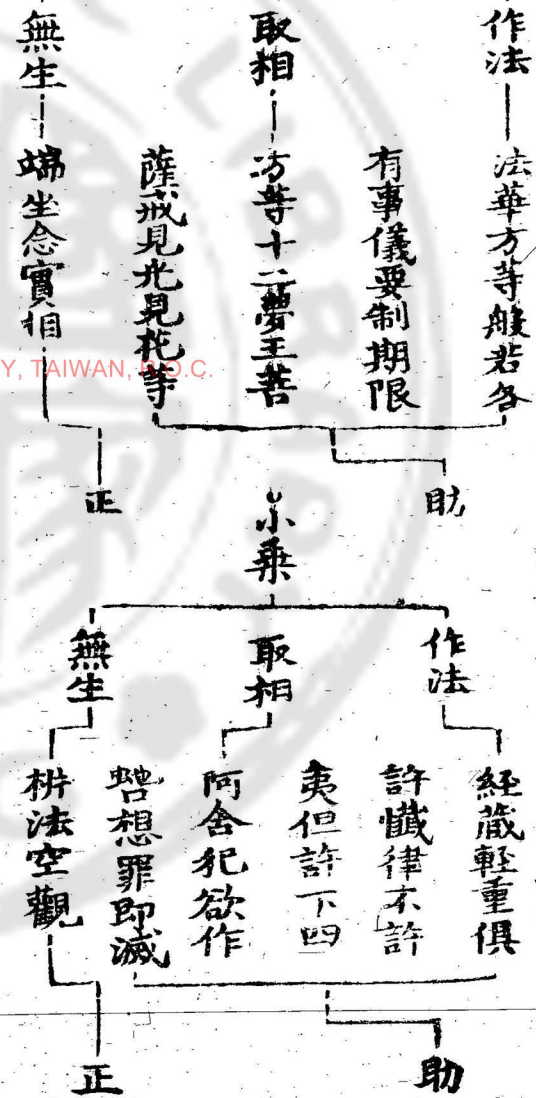 作法
法華方等般若各
有事儀要制期限
取相
方等十二夢王菩
薩戒見光見花等
無生
端坐念實相
助
正
小乘
作法
經藏輕重俱
許懺律不許
夷但許下四
取相
阿含犯欲作
毒蛇想罪即滅
無生
析法空觀
助
正
Y, TAIWAN, R.O.C.